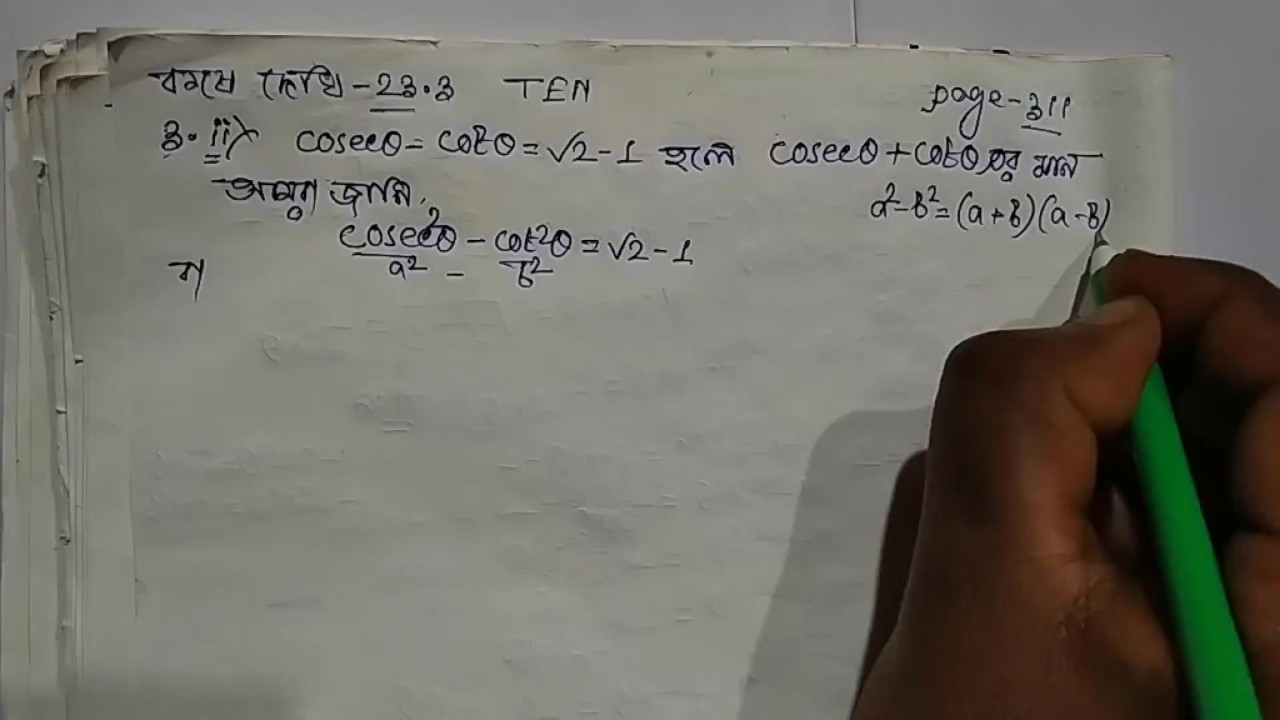 কষে দেখি - 23.3 TEN page - 311
3. ii) cosecθ = cotθ = √2 - 1 হলে cosecθ + cotθ এর মান
আমরা জানি,
a² - b² = (a + b)(a - b)
cosec²θ - cot²θ = √2 - 1
a² - b²